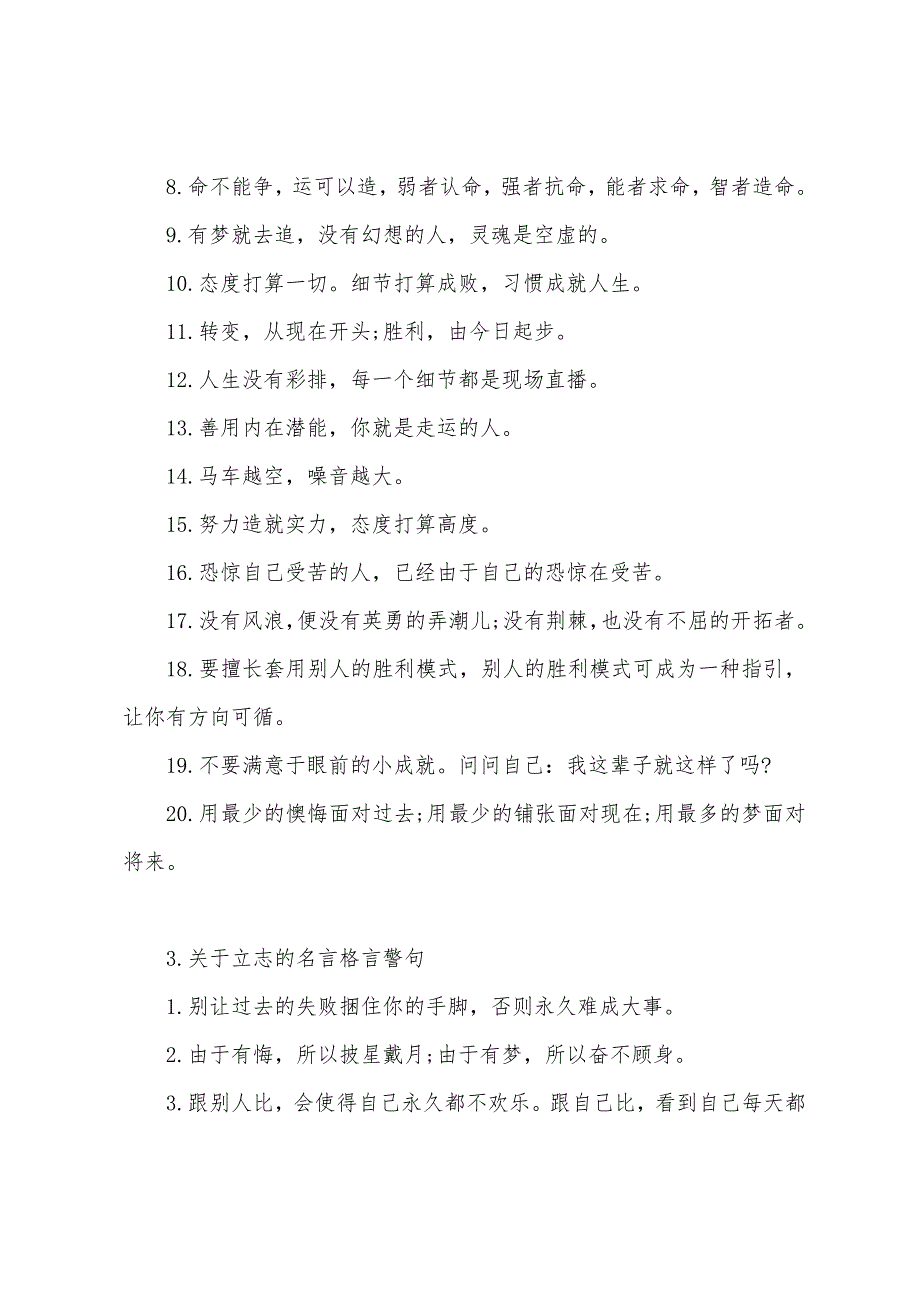 8.命不能争，运可以造，弱者认命，强者抗命，能者求命，智者造命。
9.有梦就去追，没有幻想的人，灵魂是空虚的。
10.态度打算一切。细节打算成败，习惯成就人生。
11.转变，从现在开头;胜利，由今日起步。
12.人生没有彩排，每一个细节都是现场直播。
13.善用内在潜能，你就是走运的人。
14.马车越空，噪音越大。
15.努力造就实力，态度打算高度。
16.恐惊自己受苦的人，已经由于自己的恐惊在受苦。
17.没有风浪，便没有英勇的弄潮儿;没有荆棘，也没有不屈的开拓者。
18.要擅长套用别人的胜利模式，别人的胜利模式可成为一种指引，
让你有方向可循。
19.不要满意于眼前的小成就。问问自己：我这辈子就这样了吗?
20.用最少的懊悔面对过去;用最少的铺张面对现在;用最多的梦面对
将来。
3.关于立志的名言格言警句
1.别让过去的失败捆住你的手脚，否则永久难成大事。
2.由于有悔，所以披星戴月;由于有梦，所以奋不顾身。
3.跟别人比，会使得自己永久都不欢乐。跟自己比，看到自己每天都